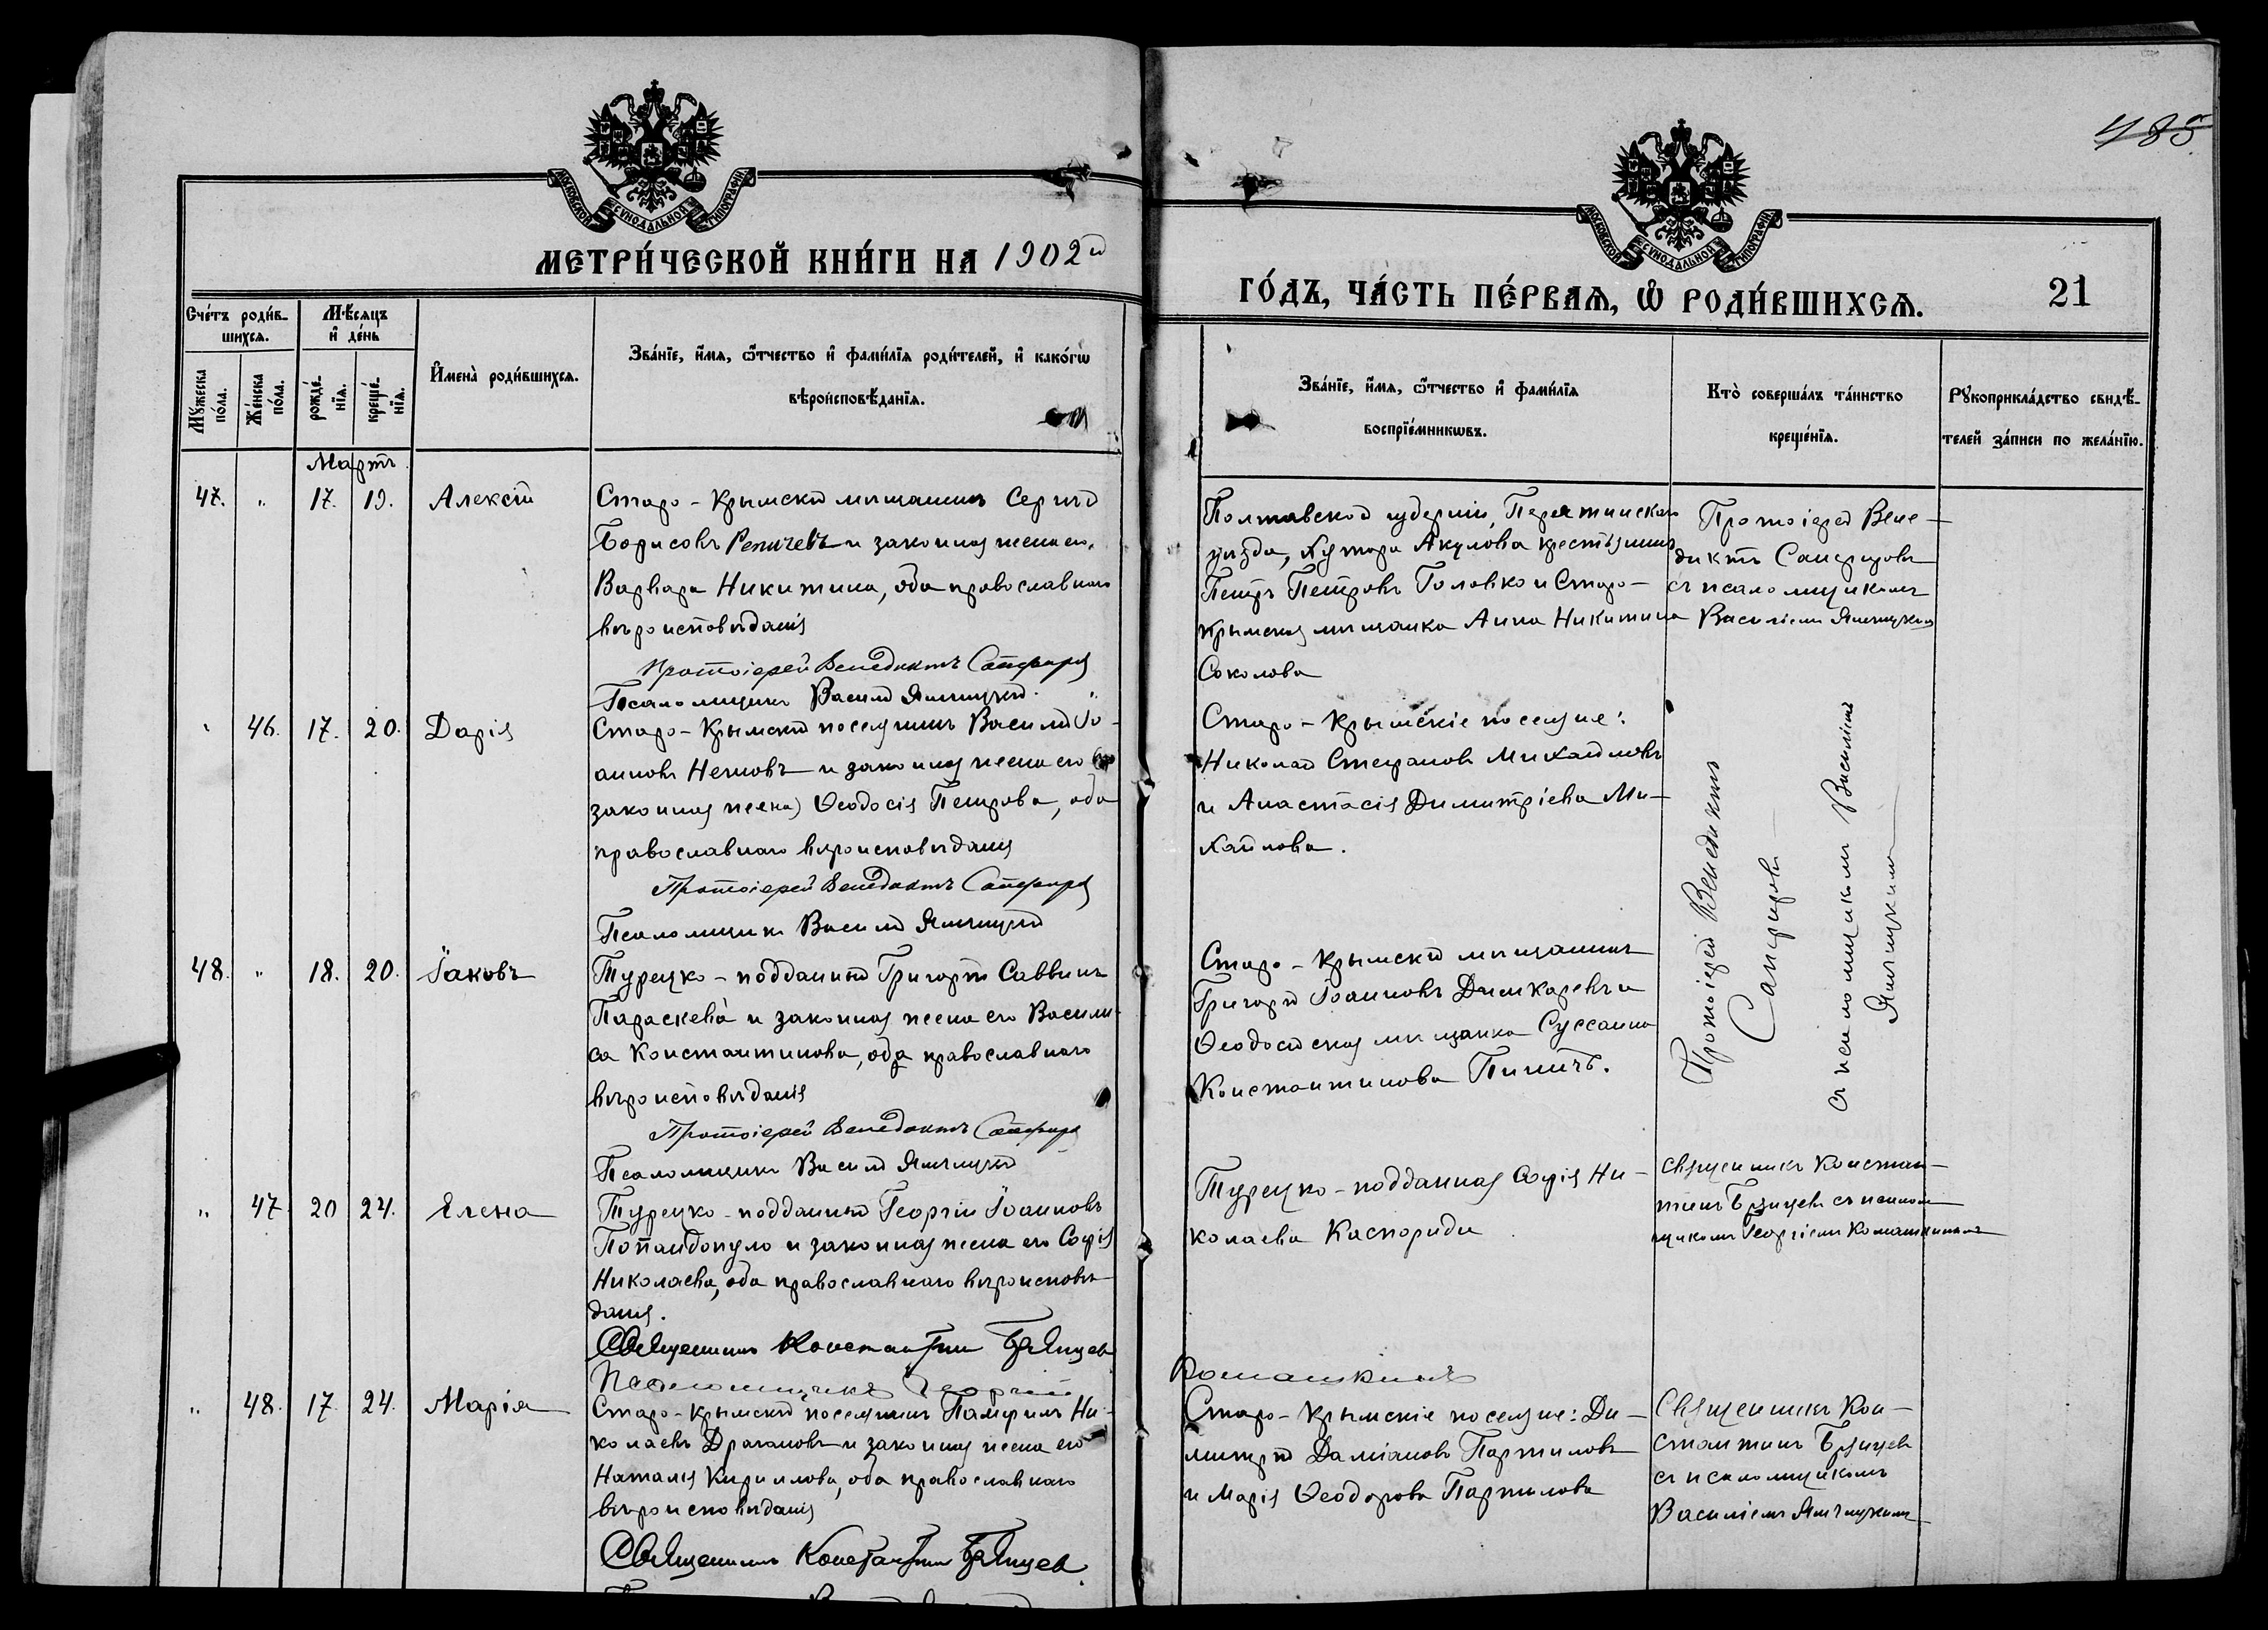 485
МОСКОВСКОЙ СѴНОДАЛЬНОЙ ТИПОГРАФІИ
МЕТРИ́ЧЕСКОЙ КНИ́ГИ НА 1902й
МОСКОВСКОЙ СѴНОДАЛЬНОЙ ТИПОГРАФІИ
ГО́ДЪ, ЧА́СТЬ ПЕ́РВАѦ, Ѡ҆ РОДИ́ВШИХСѦ.
21
Сче́тъ роди́в-
шихсѧ.
Мꙋжеска
по́ла.
Же́нска
по́ла.
Мѣ́сѧцъ
и҆ де́нь
рожде́-
нїѧ.
креще́-
нїѧ.
И҆мена̀ роди́вшихсѧ.
Зва́нїе, и҆́мѧ, ѻ҆́тчество и҆ фами́лїѧ роди́телей, и҆ како́гѡ
вѣроисповѣ́данїѧ.
Зва́нїе, и҆́мѧ, ѻ҆́тчество и҆ фами́лїѧ
воспрїе́мникѡвъ.
Кто̀ соверша́лъ та́инство
креще́нїѧ.
Рꙋкоприкла́дство свидѣ́-
телей за́писи по жела́нїю.
Мартъ
47. " 17. 19. Алексій
Старо-Крымскій мѣщанинъ Сергѣй
Борисовъ Репичевъ и законная жена его,
Варвара Никитина, оба православнаго
вѣроисповѣданія
Протоіерей Венедиктъ
Псаломщикъ Василій
Полтавской губерніи, Пирятинскаго
уѣзда, хутора Акулова крестьянинъ
Петръ Петровъ Головко и Старо-
Крымская мѣщанка Анна Никитина
Соколова
Протоіерей Вене-
диктъ
съ псаломщикомъ
Василіемъ
" 46. 17. 20. Дарія
Старо-Крымскій поселянинъ Василій Іо-
анновъ Нечновъ и законная жена его
законная жена) Ѳеодосія Петрова, оба
православнаго вѣроисповѣданія
Протоіерей Венедиктъ
Псаломщикъ Василій
Старо-Крымскіе поселяне:
Николай Стефановъ Михайловъ
и Анастасія Димитріева Ми-
хайлова.
Протоіерей Венедиктъ
съ псаломщикомъ Василіемъ
48. " 18. 20. Іаковъ
Турецко-подданный Григорій Саввинъ
Параскева и законная жена его Васили-
са Константинова, оба православнаго
вѣроисповѣданія
Протоіерей Венедиктъ
Псаломщикъ Василій
Старо-Крымскій мѣщанинъ
Григорій Іоанновъ Димкаревъ и
Ѳеодосійская мѣщанка Суссанна
Константинова
" 47. 20 24. Елена
Турецко-подданный Георгій Іоанновъ
Попандопуло и законная жена его Софія
Николаева, оба православнаго вѣроисповѣ-
данія.
Священникъ Константинъ Брянцев
Псаломщикъ Георгій Ромашкинъ
Турецко-подданная Софія Ни-
колаева Каспориди
Священникъ Констан-
тинъ Брянцевъ съ псалом-
щикомъ Георгіемъ Ромашкинымъ
" 48. 17. 24. Марія
Старо-Крымскій поселянинъ Памфилъ Ни-
колаевъ Драгановъ и законная жена его
Наталія Кириллова, оба православнаго
вѣроисповѣданія
Священникъ Константин Брянцев
Старо-Крымскіе поселяне: Ди-
митрій Даміановъ Партиловъ
и Марія Ѳеодорова Партилова
Священникъ Кон-
стантинъ Брянцевъ
съ псаломщикомъ
Василіемъ